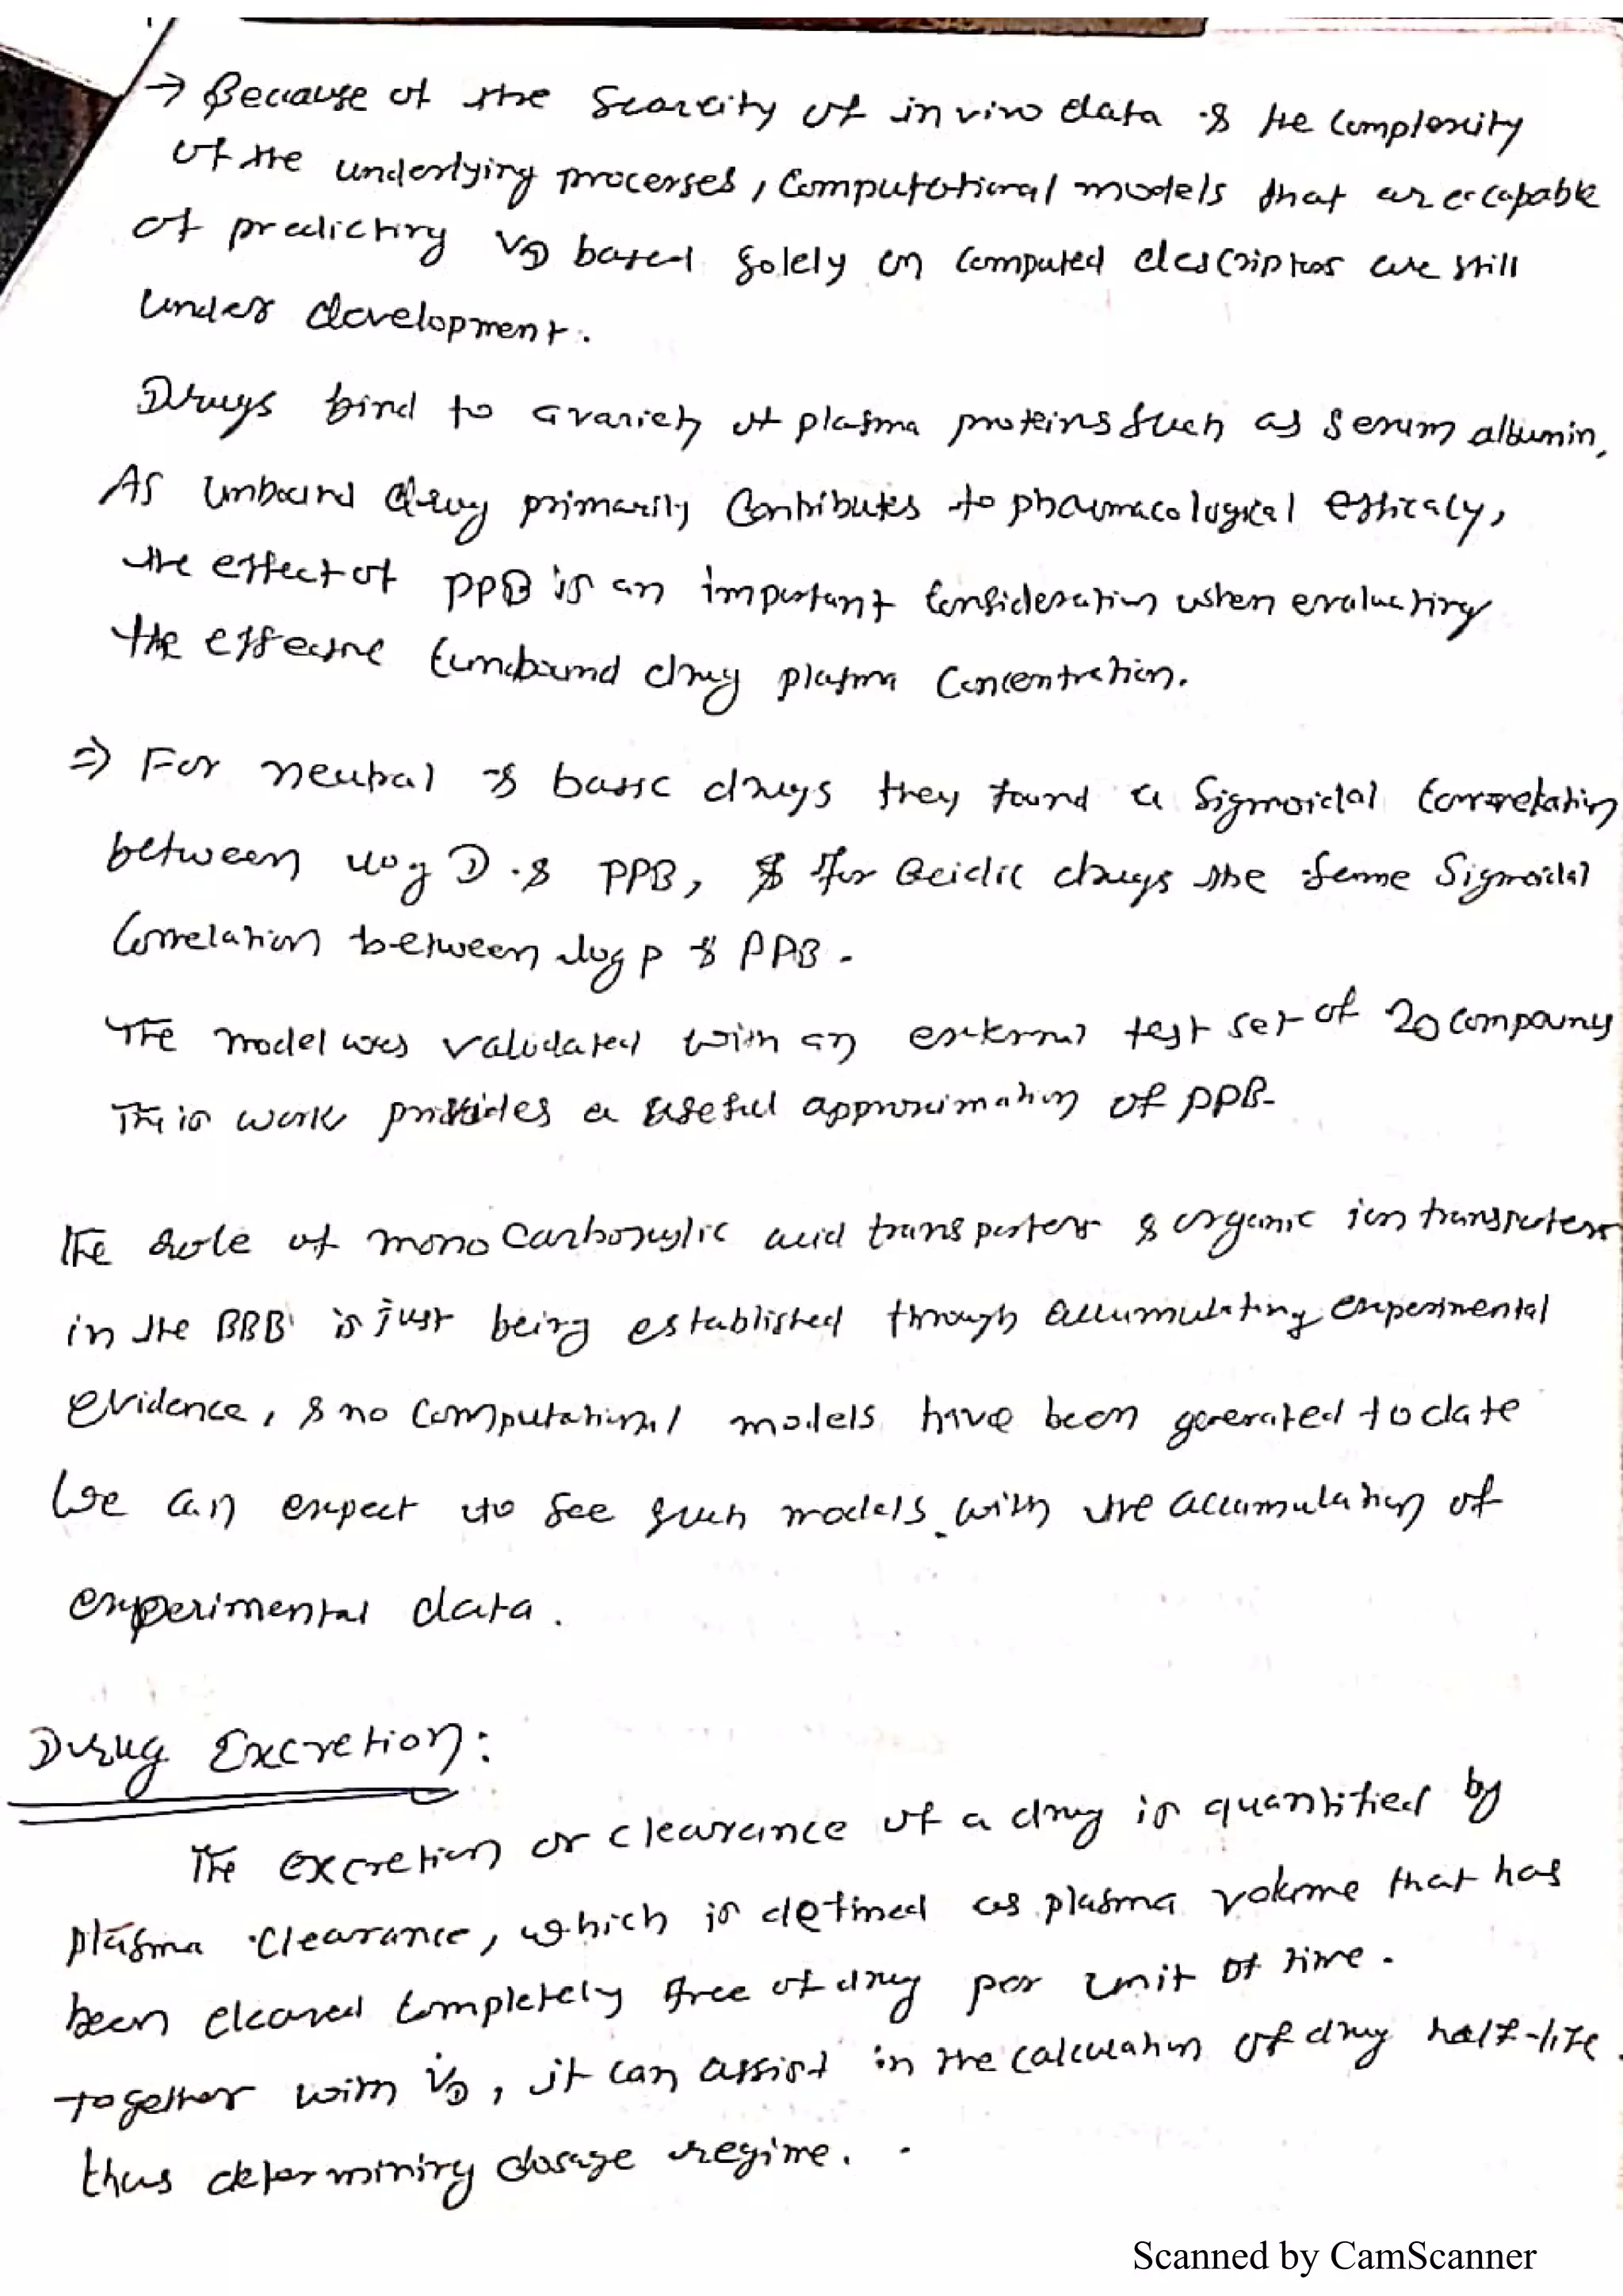 → Because of the Scarcity of in vivo data & the Complexity
of the underlying processes, Computational models that are capable
of predicting VD based solely on Computed descriptors are still
under development.
Drugs bind to a variety of plasma proteins such as Serum albumin,
As Unbound drug primarily Contributes to pharmacological efficacy,
the effect of PPB is an important Consideration when evaluating
the effective (unbound drug plasma Concentration.
⇒ For neutral & basic drugs they found a Sigmoidal Correlation
between log D & PPB, & for Acidic drugs the same Sigmoidal
Correlation between log P & PPB.
The model was validated with an external test set of 20 compounds
This work provides a useful approximation of PPB.
The role of mono Carboxylic acid transporter & organic ion transporters
in the BBB is just being established through accumulating experimental
evidence, & no Computational models have been generated to date
We Can expect to see such models with the accumulation of
experimental data.
Drug Excretion:
The excretion or clearance of a drug is quantified by
plasma clearance, which is defined as plasma volume that has
been cleared Completely free of drug per unit of time.
Together with VD, it can assist in the calculation of drug half-life.
thus determining dosage regime.
Scanned by CamScanner